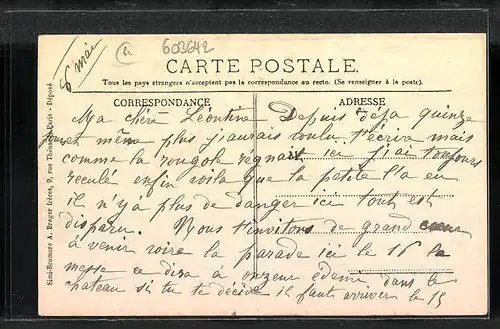 6 mai
603642
CARTE POSTALE.
Tous les pays étrangers n'acceptent pas la correspondance au recto. (Se renseigner à la poste).
CORRESPONDANCE
ADRESSE
Simi-Bromure A. Breger frères, 9, rue Thénard, Paris - Déposé
Ma chère Léontine Depuis déja quinze
jours et même plus j'aurais voulu t'écrire mais
comme la rougole regnait ici j'ai toujours
reculé enfin voila que la petite l'a eu
il n'y a plus de danger ici tout est
disparu. Nous t'invitons de grand coeur
à venir voire la parade ici le 16 la
messe ce dira à onzeur édemi dans le
chateau si tu te décide il faut arriver le 15